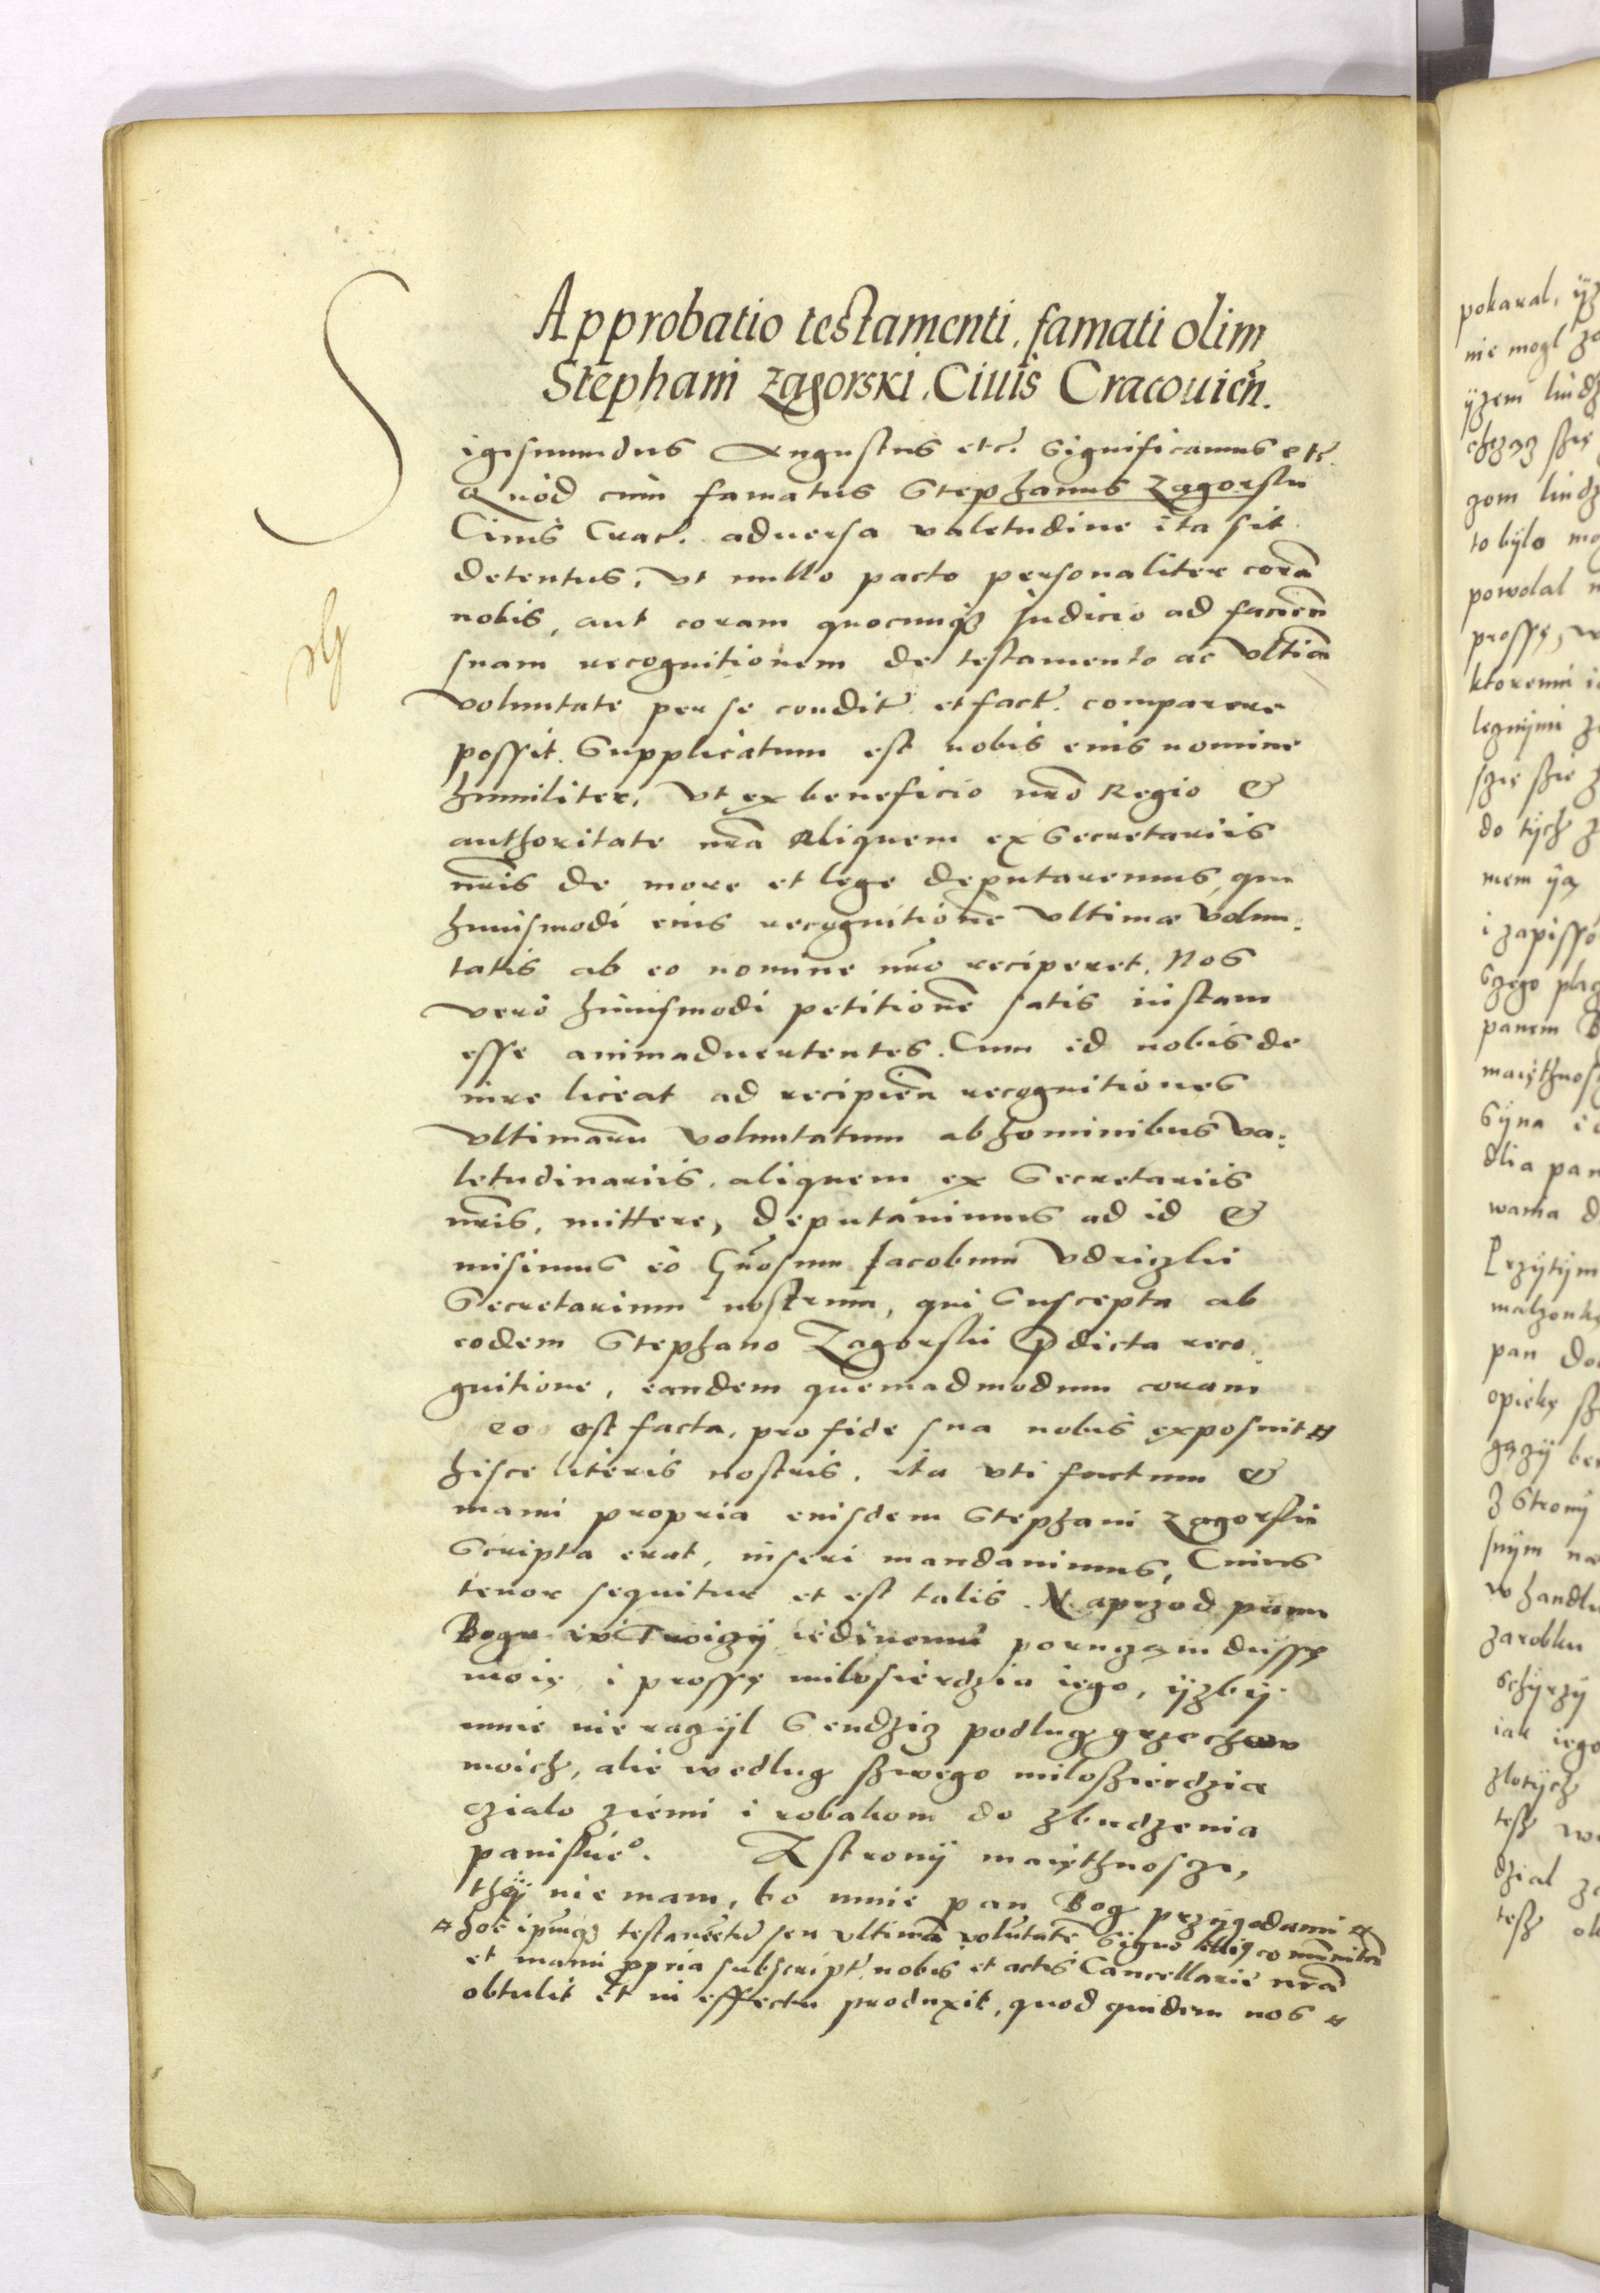 Approbatio testamenti, famati olim
Stephani Zagorski, Ciuis Cracouień.
Sigismundus Augustus etc. Significamus etc.
Quod cum famatus Stephanus Zagorski
Ciuis Crac. aduersa valetudine ita sit
detentus, vt nullo pacto personaliter corā
nobis, aut coram quocunqȝ Iudicio ad facień
suam recognitionem de testamento ac vltīa
voluntate per se condit. et fact. comparere
possit. Supplicatum est nobis eius nomine
humiliter, vt ex beneficio nr̄o Regio &
authoritate nr̄a Aliquem ex Secretariis
nr̄is de more et lege deputaremus, qui
huiusmodi eius recognitionē vltimæ volun:
tatis ab eo nomine nr̄o reciperet. Nos
vero huiusmodi petitionē satis iustam
esse animaduertentes. Cum id nobis de
iure liceat ad recipień recognitiones
vltimarū voluntatum ab hominibus va:
letudinariis, aliquem ex Secretariis
nr̄is, mittere, deputauimus ad id &
misimus eo Gn̄osum Jacobum Vdrizki
Secretarium nostrum, qui Suscepta ab
eodem Stephano Zagorski p̄dicta reco:
gnitione, eandem quemadmodum coram
eo est facta, pro fide sua nobis exposuit ¤
hisce literis nostris, ita vti factum &
manu propria eiusdem Stephani Zagorski
Scripta erat, inseri mandauimus, Cuius
tenor sequitur et est talis. Naprzod panu
Bogu w Troiczÿ iedinemu poruczam dussę
moię, i prossę milosierdzia iego, ÿzbÿ
mnie nie raczÿl Sendzicz podlug grzechow
moich, alie wedlug szwego miloszierdzia
czialo ziemi i robakom do zbudzenia
panskieo. Z stronÿ maięthnoszi,
thęÿ nie mam, bo mnie pan Bog przÿgodami
¤ hoc ipumqȝ testamētū seu vltimā volūtatē Signo comūnitā
et manu ppria subscript. nobis et actis Cancellarie nr̄a
obtulit et in effectu produxit, quod quidem nos ¤
pokaral, ÿz
nie mogl za
ÿzem
szię
zom
to bÿlo
powolal
prossę, w
ktoremu
do tÿch
mem ÿa
i zapisso
panem B
Sÿna i
dlia pan
wania d
Przÿtÿm
malzonk
pan
opiekę
z Stronÿ
w handlu
zarobku
iak iego
zlotÿch
tesz
dzial
tesz